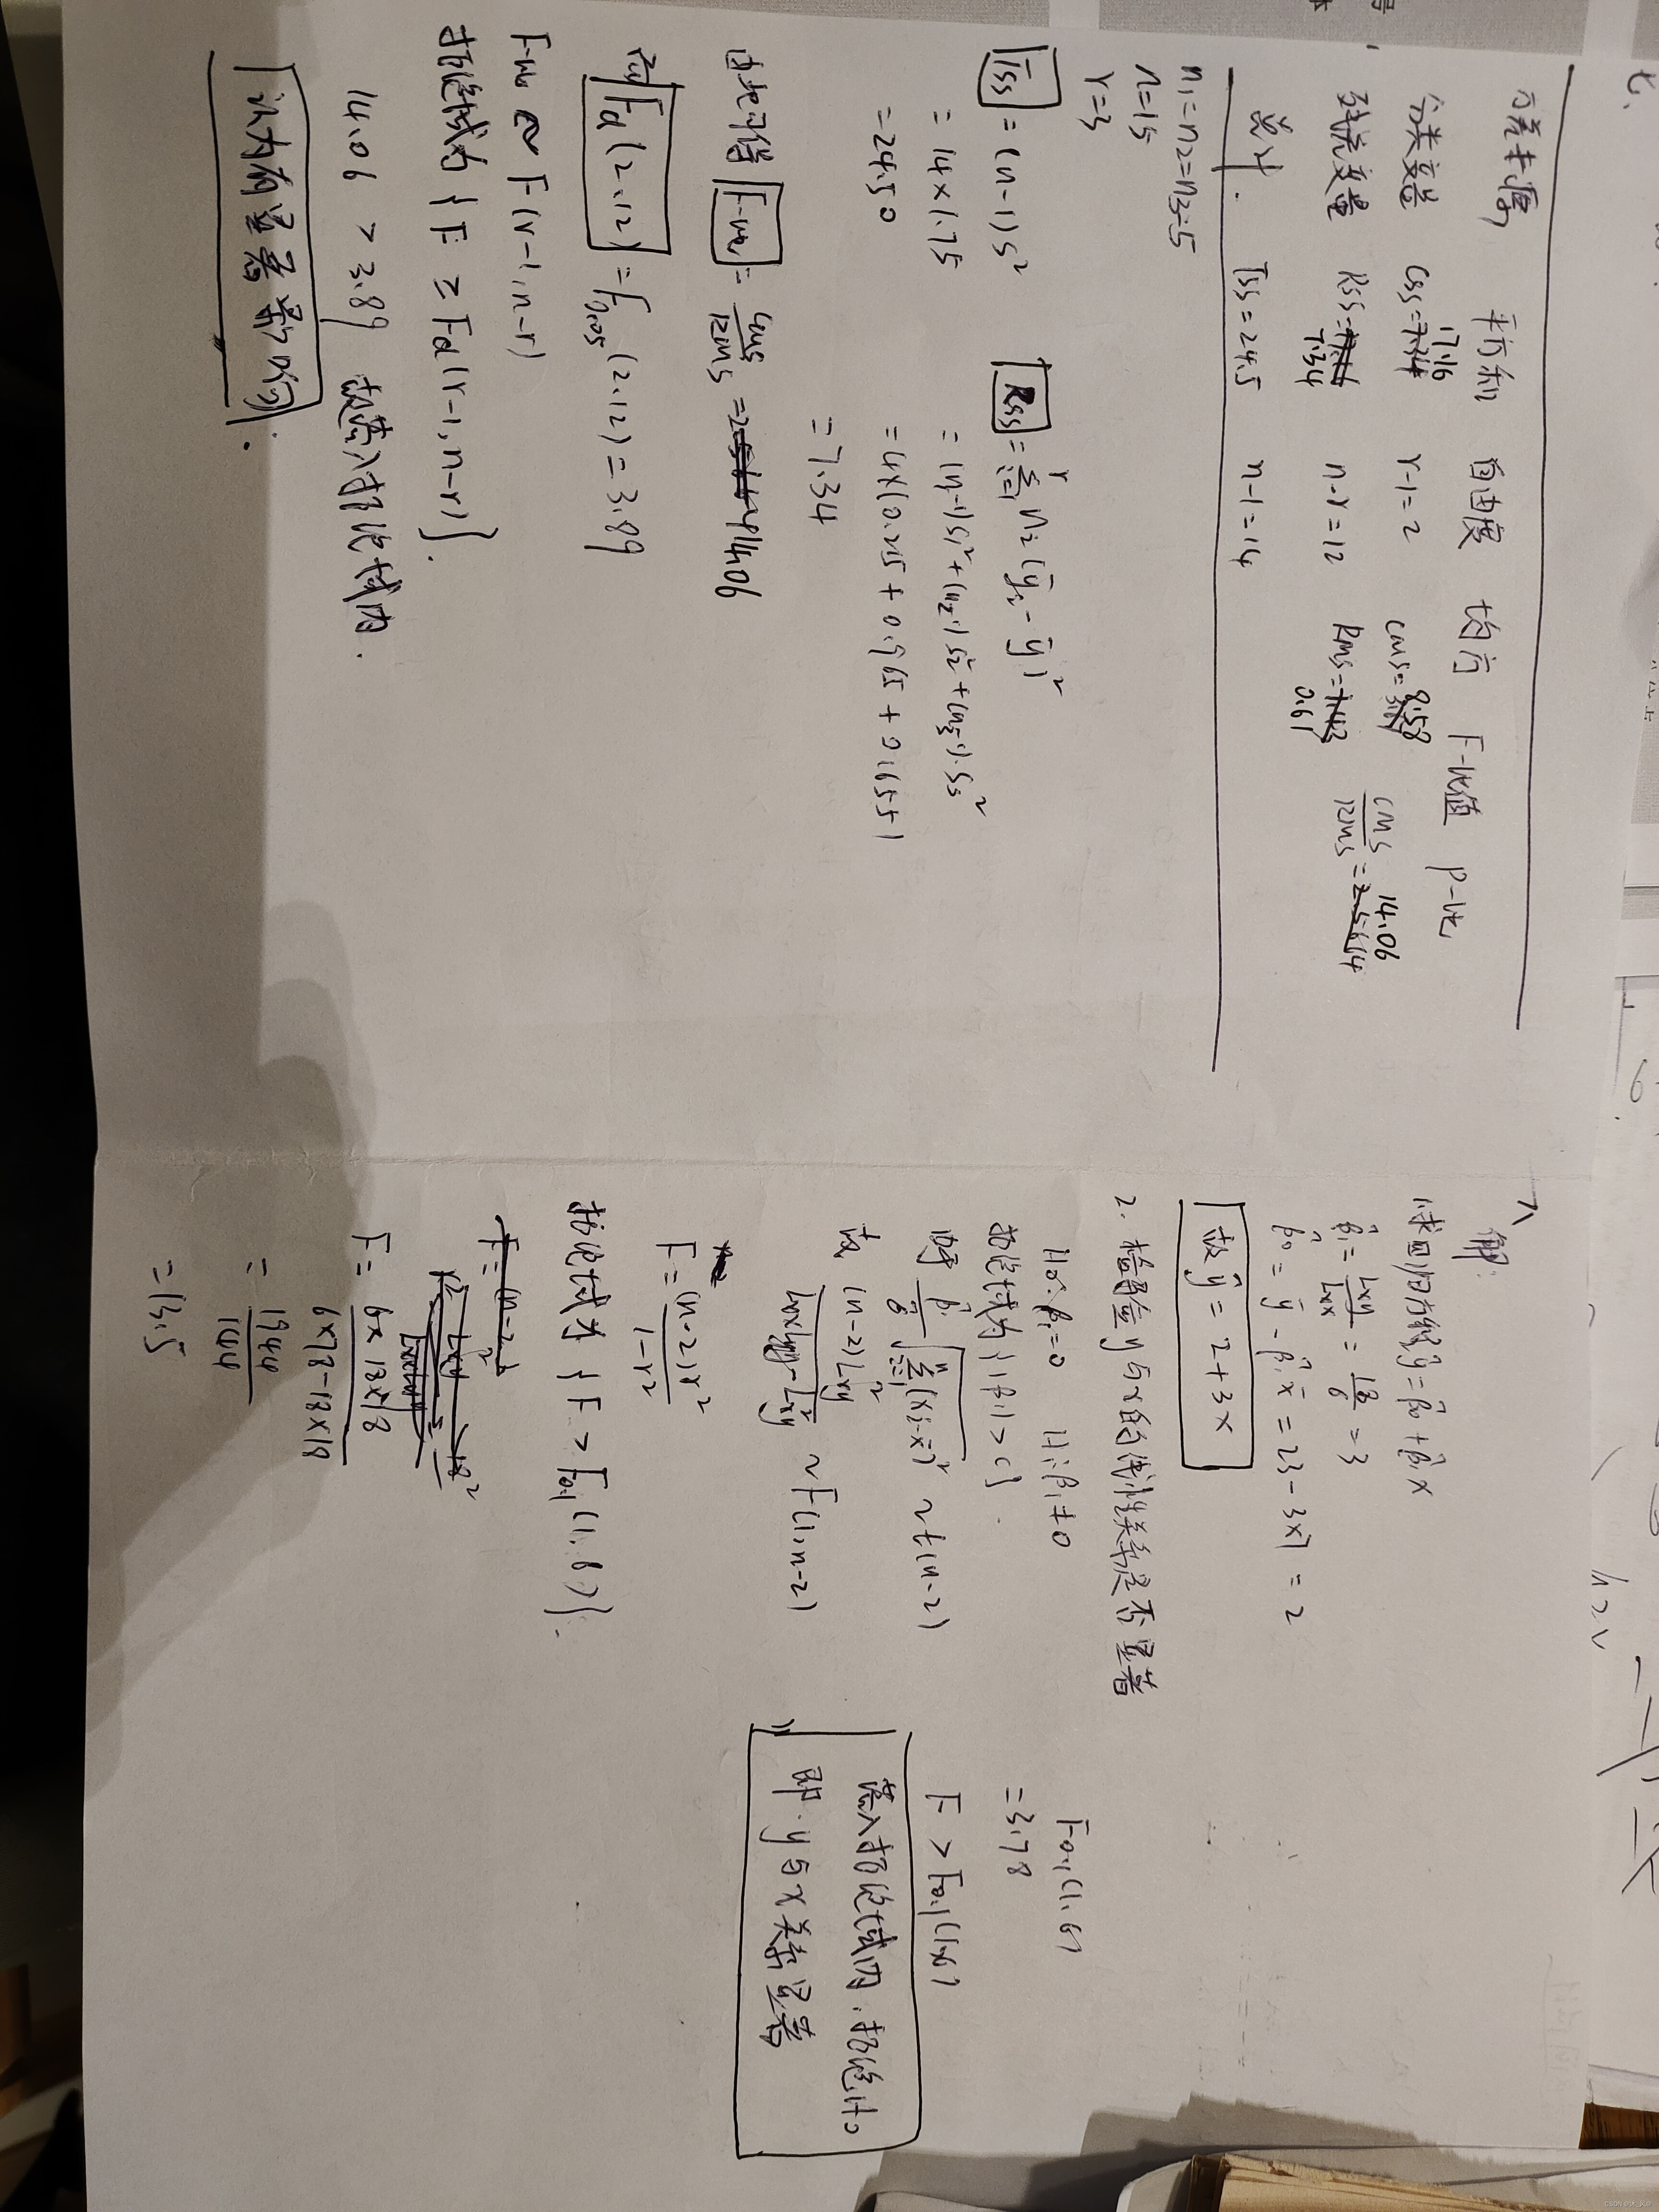 七.
方差来源 平方和 自由度 均方 F-比值 P-比
分类变量 Css=17.16 r-1=2 CMS=8.58 CMS/RMS=14.06
残差变量 Rss=7.34 n-r=12 RMS=0.61
总计. Tss=24.5 n-1=14
n1=n2=n3=5
n=15
r=3
Tss=(n-1)S²
=14×1.75
=24.50
=(n1-1)S1²+(n2-1)S2²+(n3-1)S3²
=7.34
=14.06
Fα(2,12)=F0.05(2,12)=3.89
~F(r-1,n-r)
拒绝域为{F≥Fα(r-1,n-r)}.
14.06>3.89 故落入拒绝域内.
认为有显著影响.
八 解:
1.求回归方程ŷ=β̂0+β̂1x
β̂1=Lxy/Lxx=18/6=3
β̂0=ȳ-β̂1x̄=23-3×7=2
故ŷ=2+3x
2.检验y与x的线性关系是否显著
H0:β1=0 H1:β1≠0
拒绝域为{|β̂1|>c}.
~t(n-2)
故 (n-2)Lxy²/(LxxLyy-Lxy²) ~F(1,n-2)
F=(n-2)r²/(1-r²)
拒绝域为{F>F0.1(1,6)}.
F=6×18×18/(6×78-18×18)
=1944/144
=13.5
F0.1(1,6)
=3.78
F>F0.1(1,6)
落入拒绝域内.拒绝H0
即y与x关系显著
CSDN @M_JKJF